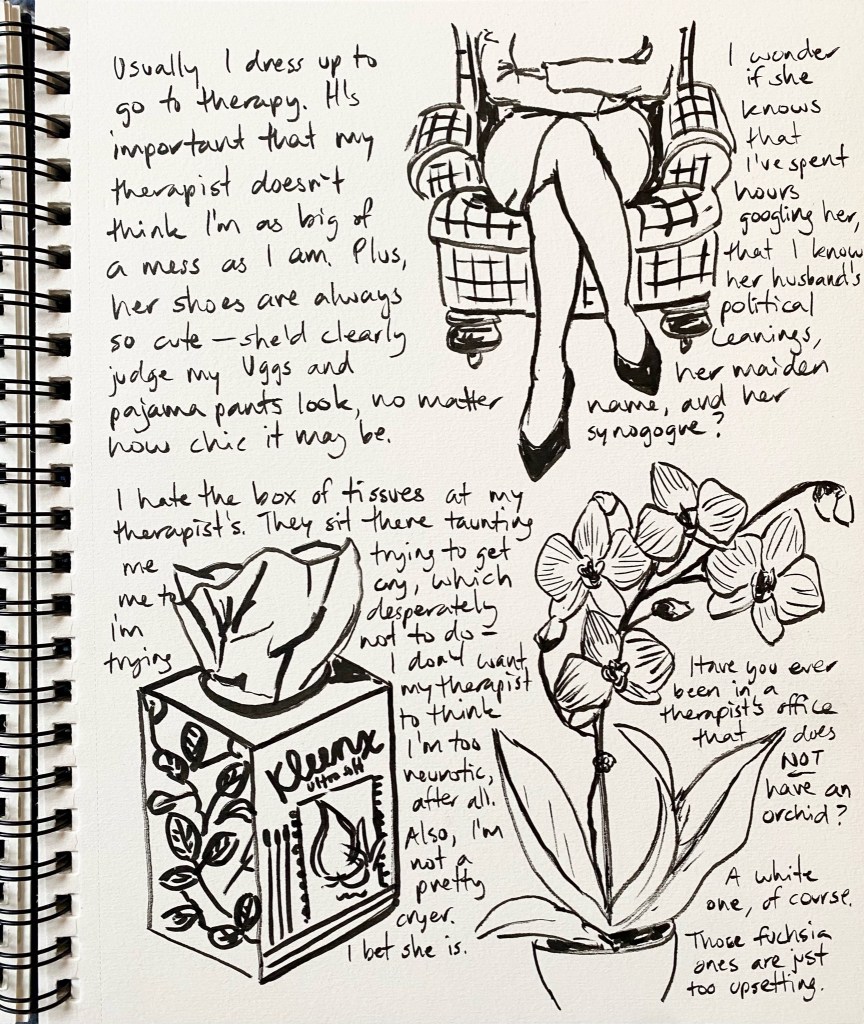 Usually I dress up to
go to therapy. It's
important that my
therapist doesn't
think I'm as big of
a mess as I am. Plus,
her shoes are always
so cute — she'd clearly
judge my Uggs and
pajama pants look, no matter
how chic it may be.
I wonder
if she
knows
that
I've spent
hours
googling her,
that I know
her husband's
political
leanings,
her maiden
name, and her
synogogue?
I hate the box of tissues at my
therapist's. They sit there taunting
me trying to get
me to cry, which
I'm desperately
trying not to do –
I don't want
my therapist
to think
I'm too
neurotic,
after all.
Also, I'm
not a
pretty
cryer.
I bet she is.
Kleenx
Ultra soft
Have you ever
been in a
therapist's office
that does
NOT
have an
orchid?
A white
one, of course.
Those fuchsia
ones are just
too upsetting.